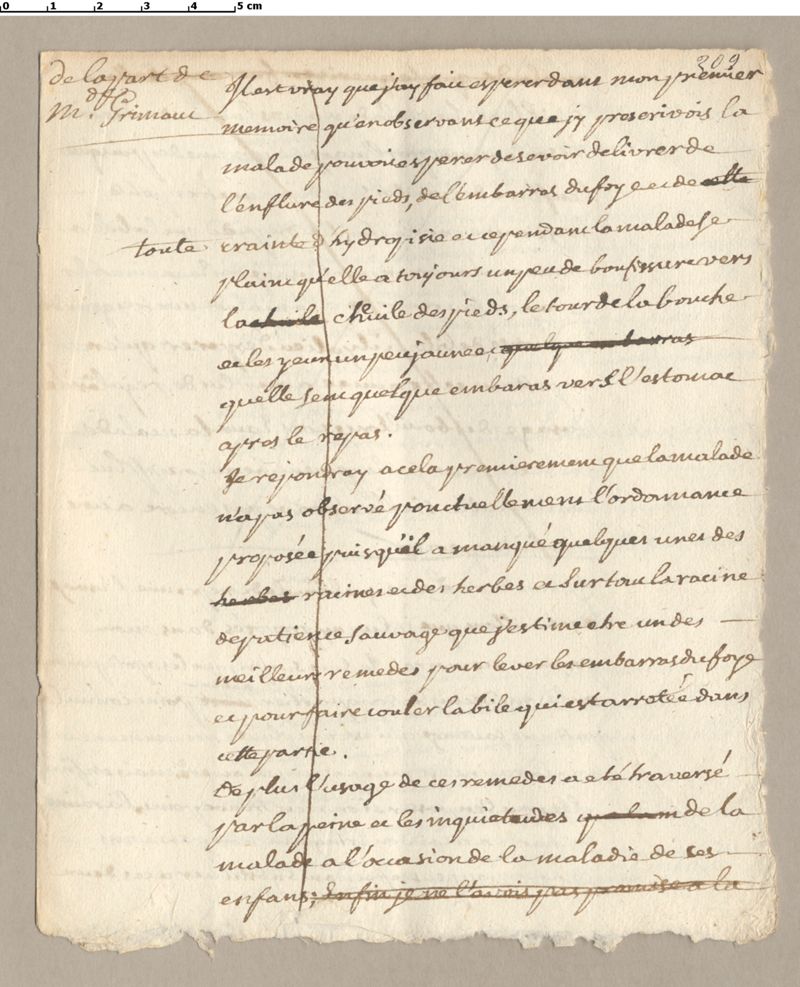 0 1 2 3 4 5 cm
209
de la part de
Md.e Grimaut
Il est vray que j'ay fait esperer dans mon premier
memoire qu'en observant ce que j'y prescrivois la
malade pouvoit esperer de se voir delivrer de
l'enflure des pieds, de l'embarras du foye et de cette
toute crainte d'hydropisie et cependant la malade se
plaint qu'elle a toujours un peu de bouffissure vers
la chuile cheuile des pieds, le tour de la bouche
et les yeux un peu jaune et quelque embarras
qu'elle sent quelque embaras vers l'estomac
apres le repas.
Je repondray a cela premierement que la malade
n'a pas observé ponctuellement l'ordonnance
proposée puisqu'il a manqué quelques unes des
herbes racines et des herbes et surtout la racine
de patience sauvage que j'estime etre un des
meilleurs remedes pour lever les embarras du foye
et pour faire couler la bile qui est arretée dans
cette partie.
De plus l'usage de ces remedes a eté traversé
par la peine et les inquietudes de la
malade a l'occasion de la maladie de ses
enfans; Enfin je ne l'avois pas promise a la